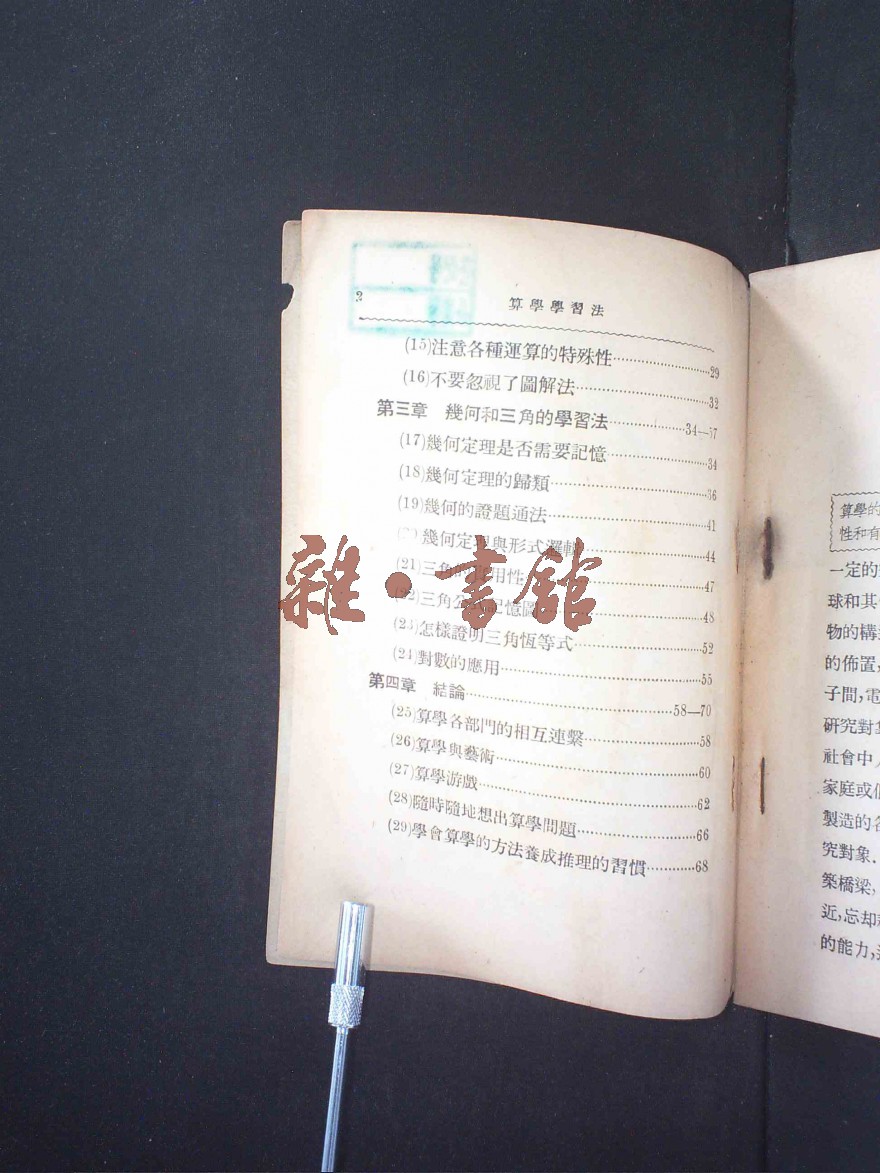 2
算學學習法
(15)注意各種運算的特殊性……29
(16)不要忽視了圖解法……32
第三章 幾何和三角的學習法……34—57
(17)幾何定理是否需要記憶……34
(18)幾何定理的歸類……36
(19)幾何的證題通法……41
幾何定理與形式邏輯……44
(21)三角的實用性……47
(22)三角公式記憶圖……48
(23)怎樣證明三角恆等式……52
(24)對數的應用……55
第四章 結論……58—70
(25)算學各部門的相互連繫……58
(26)算學與藝術……60
(27)算學游戲……62
(28)隨時隨地想出算學問題……66
(29)學會算學的方法養成推理的習慣……68
雜·書館
算學的
性和有
一定的
球和其
物的構
的佈置,
子間,電
研究對象
社會中
家庭或
製造的各
究對象.
築橋梁,
近,忘却
的能力,